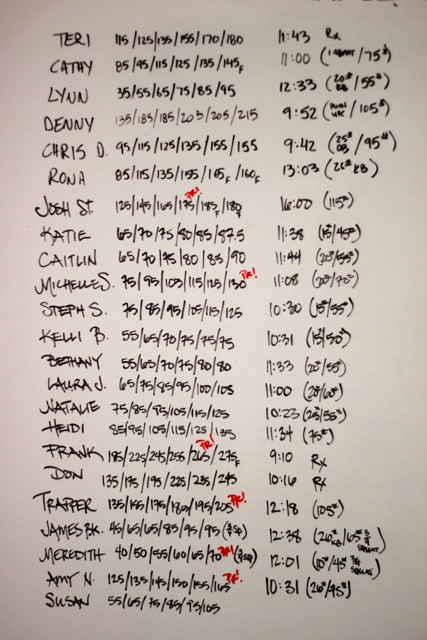 TERI 115/125/135/155/170/180 11:43 Rx
CATHY 85/95/115/125/135/145F 11:00 (/75#)
LYNN 35/55/65/75/85/95 12:33 (20# DB/55#)
DENNY 135/185/185/205/205/215 9:52 (/105#)
CHRIS D. 95/115/125/135/155/155 9:42 (25# DB/95#)
RONA 85/115/135/155/165F/160F 13:03 (KB)
JOSH ST. 125/145/165/175 PR!/185F/180F 16:00 (115#)
KATIE 65/70/75/80/85/87.5 11:38 (15#/45#)
CAITLIN 65/70/75/80/85/90 11:44 (20#/55#)
MICHELLE S. 75/95/103/115/125/130 PR! 11:08 (20#/75#)
STEPH S. 75/85/95/105/115/125 10:30 (15#/55#)
KELLI B. 55/65/70/75/75/75 10:31 (15#/50#)
BETHANY 55/65/70/75/80/80 11:33 (20#/55#)
LAURA J. 65/75/85/95/100/105 11:00 (20#/60#)
NATALIE 75/85/95/105/115/125 10:23 (20#/55#)
HEIDI 85/95/105/115/125/135 11:34 (75#)
FRANK 185/225/245/255/265 PR!/275F 9:10 Rx
DON 135/175/195/225/235/245 10:16 Rx
TRAPPER 135/155/175/180/195/205 PR! 12:18 (105#)
JAMES B.K. 45/65/65/85/95/95 (3/4 SQ) 12:38 (20# KB/65# 3/4 SQUAT)
MEREDITH 40/50/55/60/65/70 PR! (3/4 SQ) 12:01 (10#/45# 3/4 SQUAT)
AMY N. 125/135/145/150/155/165 PR! 10:31 (26#/95#)
SUSAN 55/65/75/85/95/105